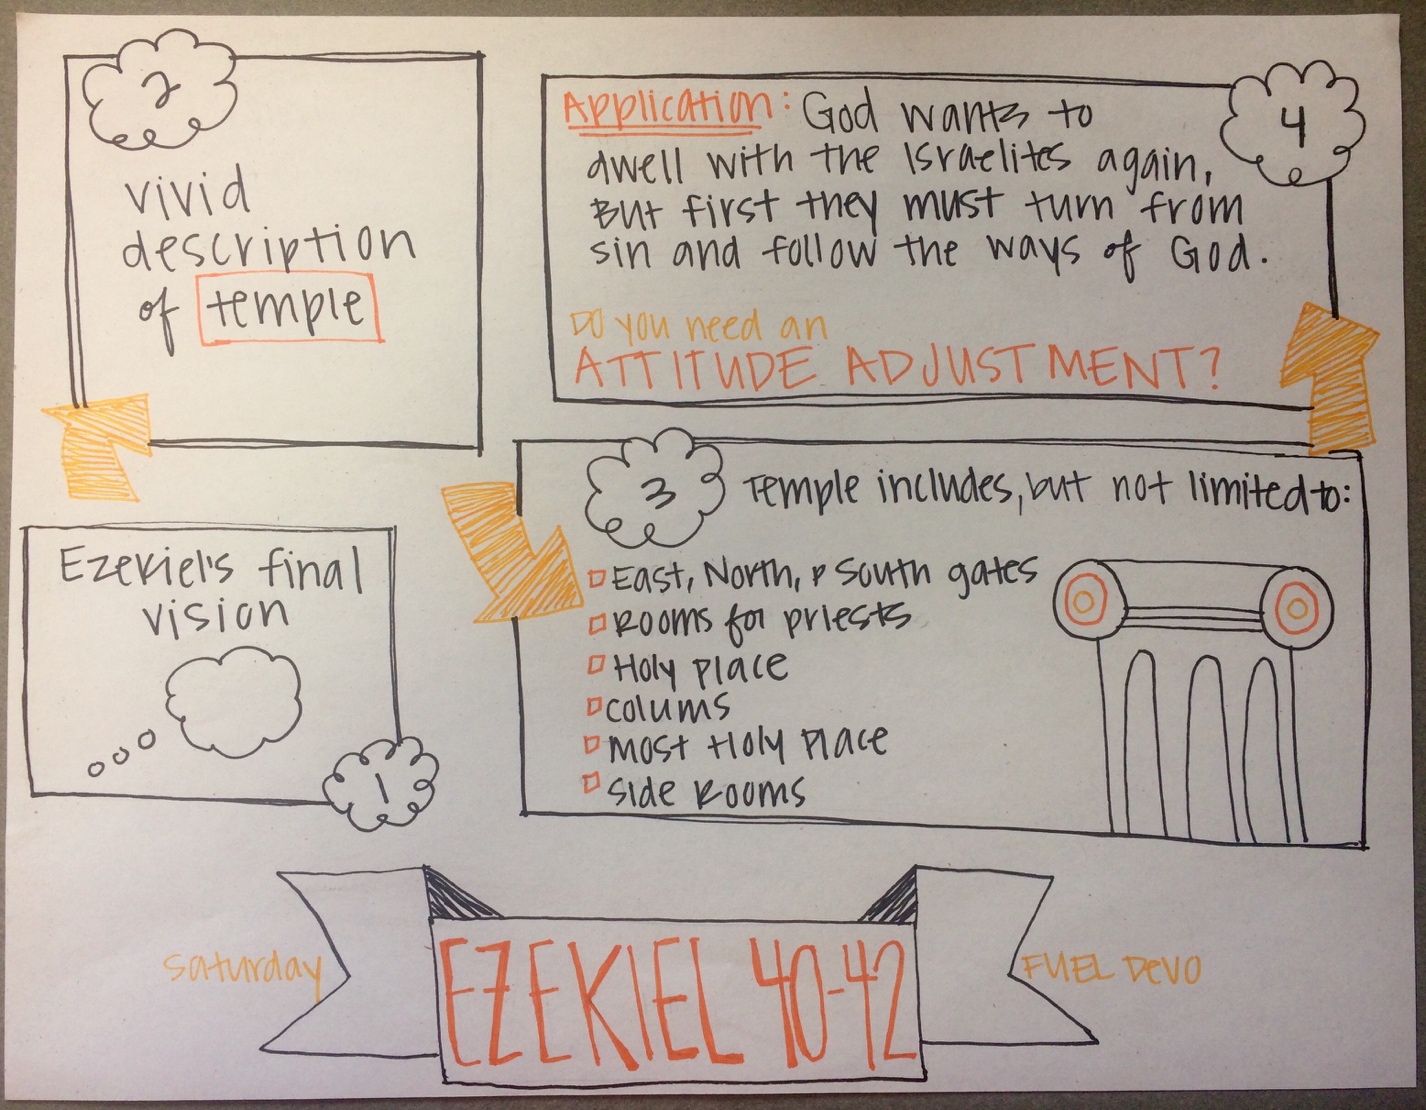 1
Ezekiel's final
vision
2
vivid
description
of temple
3
Temple includes, but not limited to:
East, North, & South gates
Rooms for priests
Holy place
colums
most Holy Place
side Rooms
4
Application: God wants to
dwell with the Israelites again,
But first they must turn from
sin and follow the ways of God.
Do you need an
ATTITUDE ADJUSTMENT?
Saturday
EZEKIEL 40-42
FUEL Devo